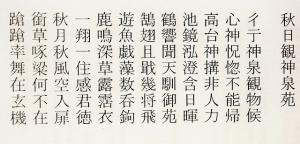 秋日観神泉苑
彳亍神泉観物候
心神怳惚不能帰
高台神構非人力
池鏡泓澄含日暉
鶴響聞天馴御苑
鵠翅且戢幾将飛
遊魚戯藻数呑鉤
鹿鳴深草露霑衣
一翔一住感君徳
秋月秋風空入扉
銜草啄粱何不在
蹌蹌率舞在玄機